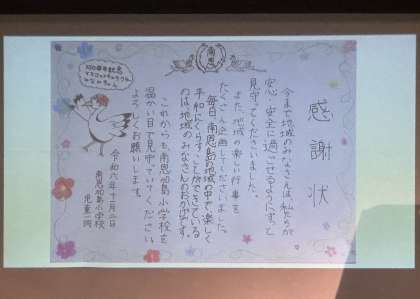 南恩
100周年記念
マスコットキャラクター
みなみちゃん
感謝状
今まで地域のみなさんは私たちが
安心・安全に過ごせるようにずっと
見守ってくださいました。
また、地域の楽しい行事を
たくさん企画してくださいました。
毎日、南恩加島の地域の中で、楽しく
平和にくらすことができている
のは地域のみなさんのおかげです。
これからも、南恩加島小学校を
温かい目で見守っていてください。
よろしくお願いします。
令和六年十一月二日
南恩加島小学校
児童一同